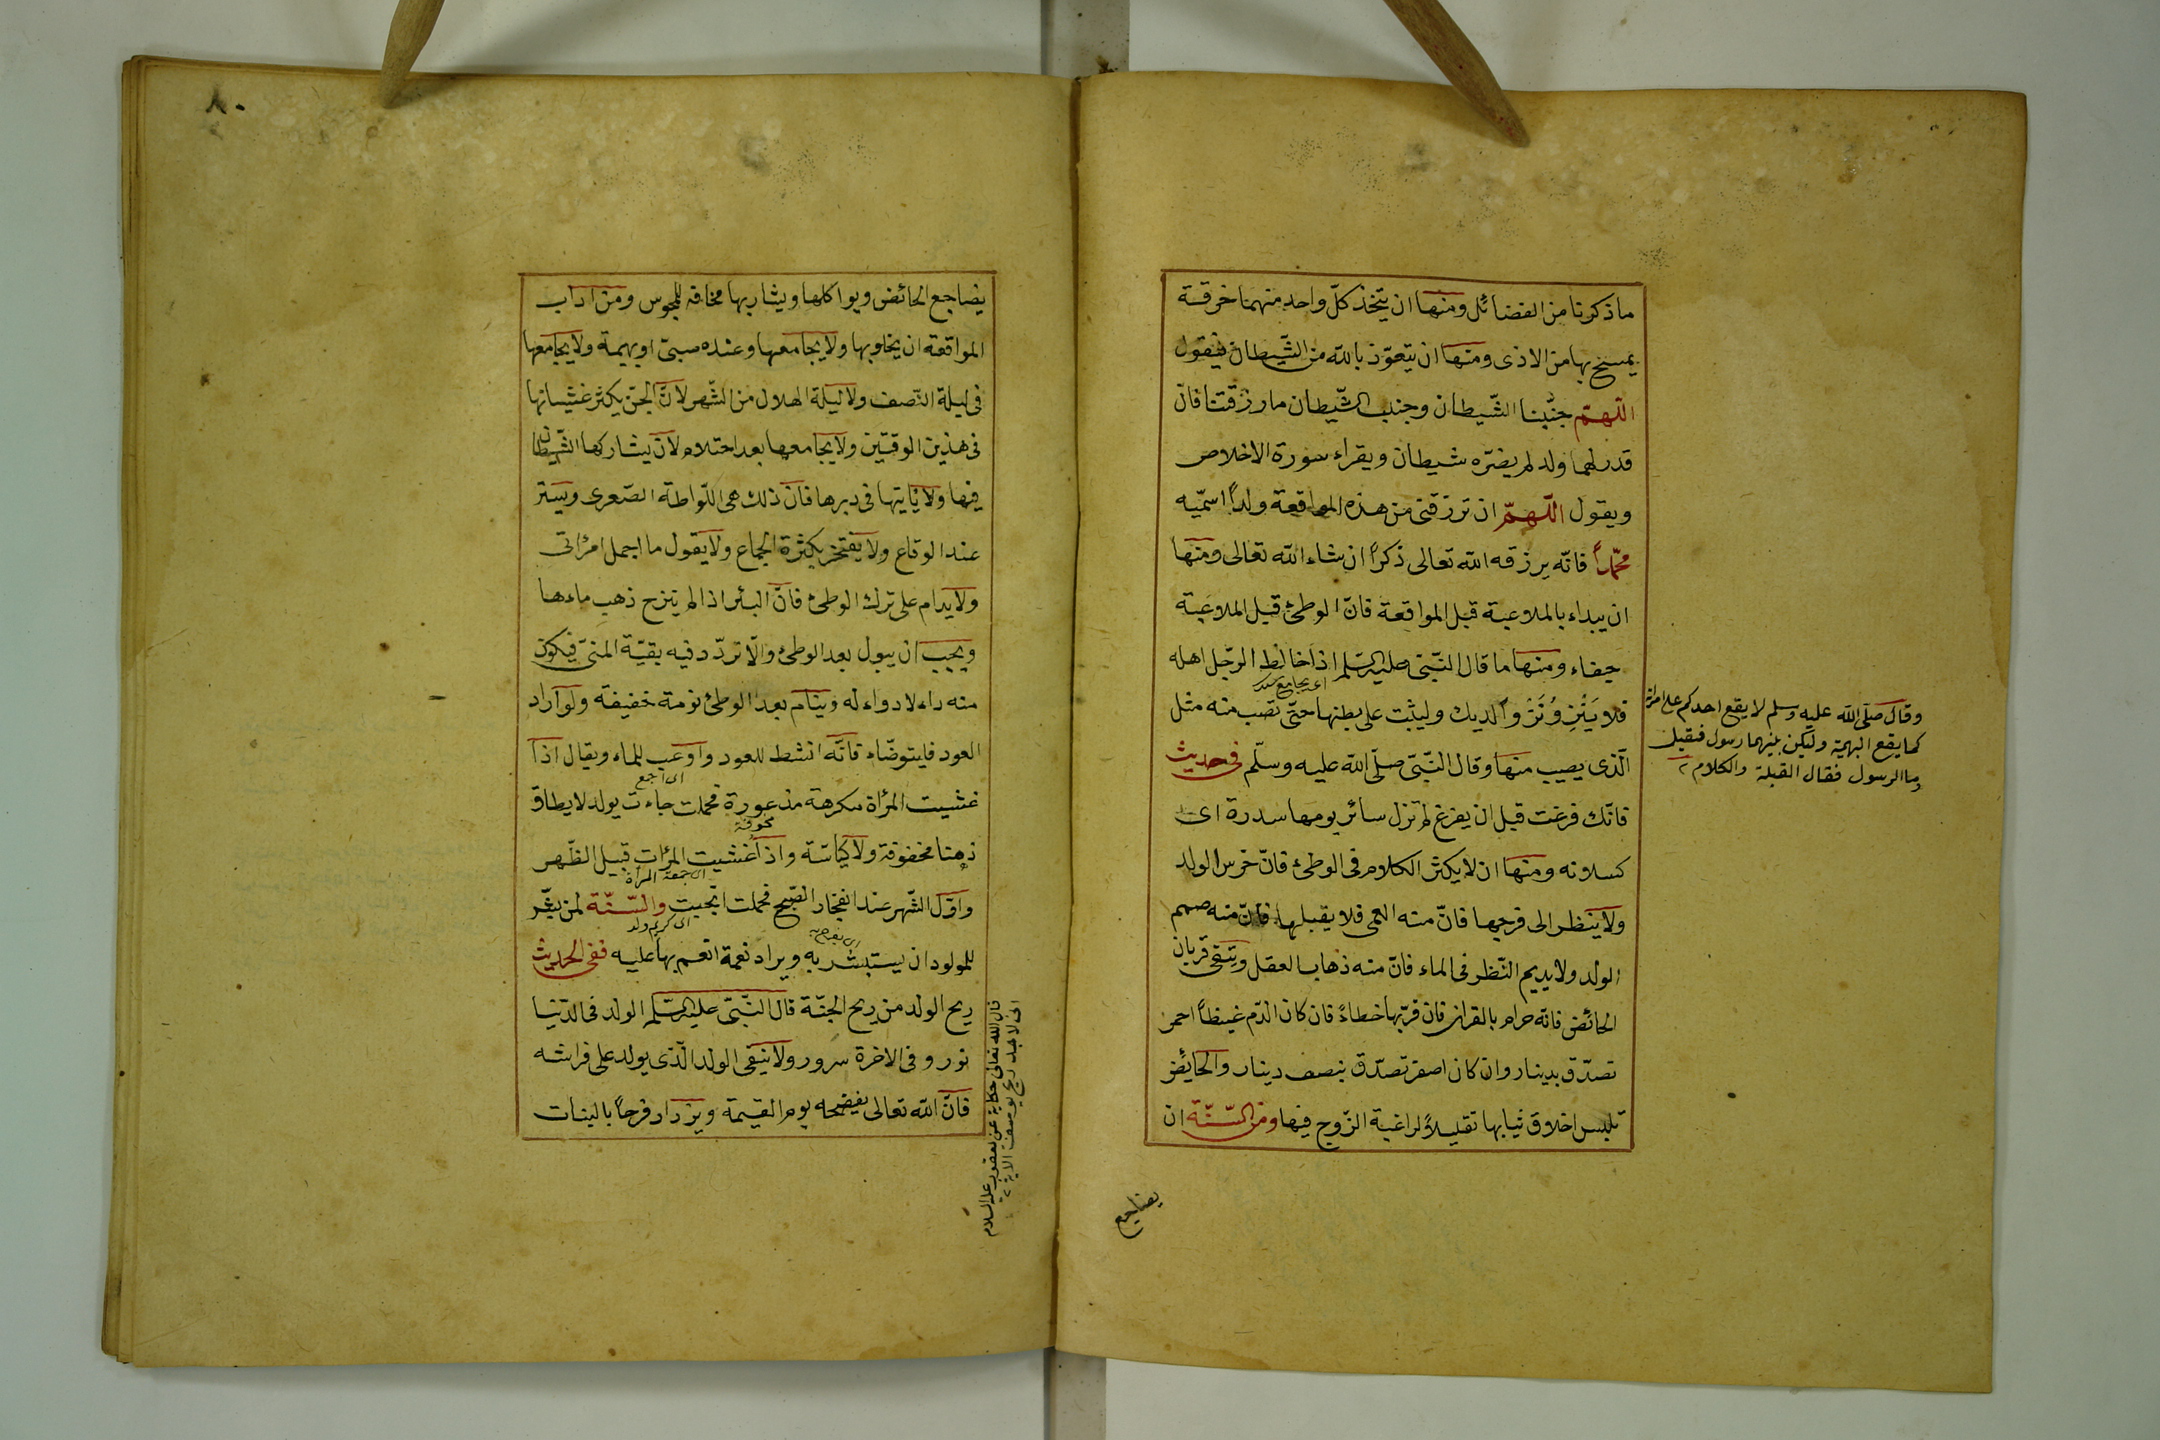 ما ذكرنا من الفضائل ومنها ان يتخذ كلّ واحد منهما خرقة
يمسح بها من الاذى ومنها ان يتعوّذ بالله من الشّيطان فيقول
اللّهمّ جنّبنا الشّيطان وجنب الشّيطان ما رزقتنا فان
قدر لهما ولد لم يضرّه شيطان ويقراء سورة الاخلاص
ويقول اللّهمّ ان ترزقنى من هذه المواقعة ولداً اسمّيه
محمّداً فانّه يرزقه الله تعالى ذكراً ان شاء الله تعالى ومنها
ان يبداء بالملاعبة قبل المواقعة فانّ الوطئ قبل الملاعبة
جفاء ومنها ما قال النّبى عليه السّلم اذا خالط الرّجل اهله
اى يجامع
فلا ينزو نزو الديك وليثبت على بطنها حتّى تصب منه مثل
الّذى يصيب منها وقال النّبىّ صلّى الله عليه وسلّم فى حديث
فانّك فرغت قبل ان يفرغ لم تزل سائر يومها سدرة اى
كسلانه ومنها ان لا يكثر الكلام فى الوطئ فانّ خرس الولد
ولا ينظر الى فرجها فانّ منه العمى فلا يقبلها فانّ منه صمم
الولد ولا يديم النّظر فى الماء فانّ منه ذهاب العقل ويتّقى قربان
الحائض فانّه حرام بالقران فان قربها خطاءً فان كان الدّم غيظاً احمر
تصدّق بدينار وان كان اصفر تصدّق بنصف دينار والحايض
تلبس اخلاق ثيابها تقليلاً لراغبة الزّوج فيها ومن السّنّة ان
يضاجع
وقال صلّى الله عليه وسلم لا يقع احدكم على امراته
كما يقع البهيمة وليكن بينهما رسول فقيل
وما الرسول فقال القبلة والكلام
٨٠
يضاجع الحائض ويواكلها ويشاربها مخافة للمجوس ومن اداب
المواقعة ان يخلو بها ولا يجامعها وعنده صبىّ او بهيمة ولا يجامعها
فى ليلة النّصف ولا ليلة الهلال من الشّهر لانّ الجنّ يكثر غشيانها
فى هذين الوقتين ولا يجامعها بعد احتلام لان يشاركها الشّيطان
فيها ولا ياتيها فى دبرها فانّ ذلك هى اللّواطة الصّغرى ويستر
عند الوقاع ولا يفتخر بكثرة الجماع ولا يقول ما اجمل امرأتى
ولا يدام على ترك الوطئ فانّ البئر اذا لم ينزح ذهب ماءها
ويجب ان يبول بعد الوطئ والّا تردّد فيه بقيّة المنىّ فيكون
منه داء لا دواء له وينام بعد الوطئ نومة خفيفة ولو اراد
العود فليتوضّاء فانّه انشط للعود واوعب للماء ويقال اذا
اى اجمع
غشيت المرأة مكرهة مذعورة فحملت جاءت بولد لا يطاق
مخوفة
ذهنا محفوفة ولا كياسّة واذا غشيت المرأت قبيل الظّهر
اى جمعة المرأة
واوّل الشّهر عند انفجار الصّبح فحملت انجبت والسّنّة لمن بشّر
اى كريم ولد
اى يفرح به
للمولود ان يستبشر به ويراد نعمة انعم بها عليه ففى الحديث
ريح الولد من ريح الجنّة قال النّبىّ عليه السّلم الولد فى الدّنيا
نور وفى الاخرة سرور ولا ينفى الولد الّذى يولد على فراشه
فانّ الله تعالى يفضحه يوم القيمة ويزداد فرحاً بالبنات
قال الله تعالى حكاية عن يعقوب عليه السلام
انى لاجد ريح يوسف الاية